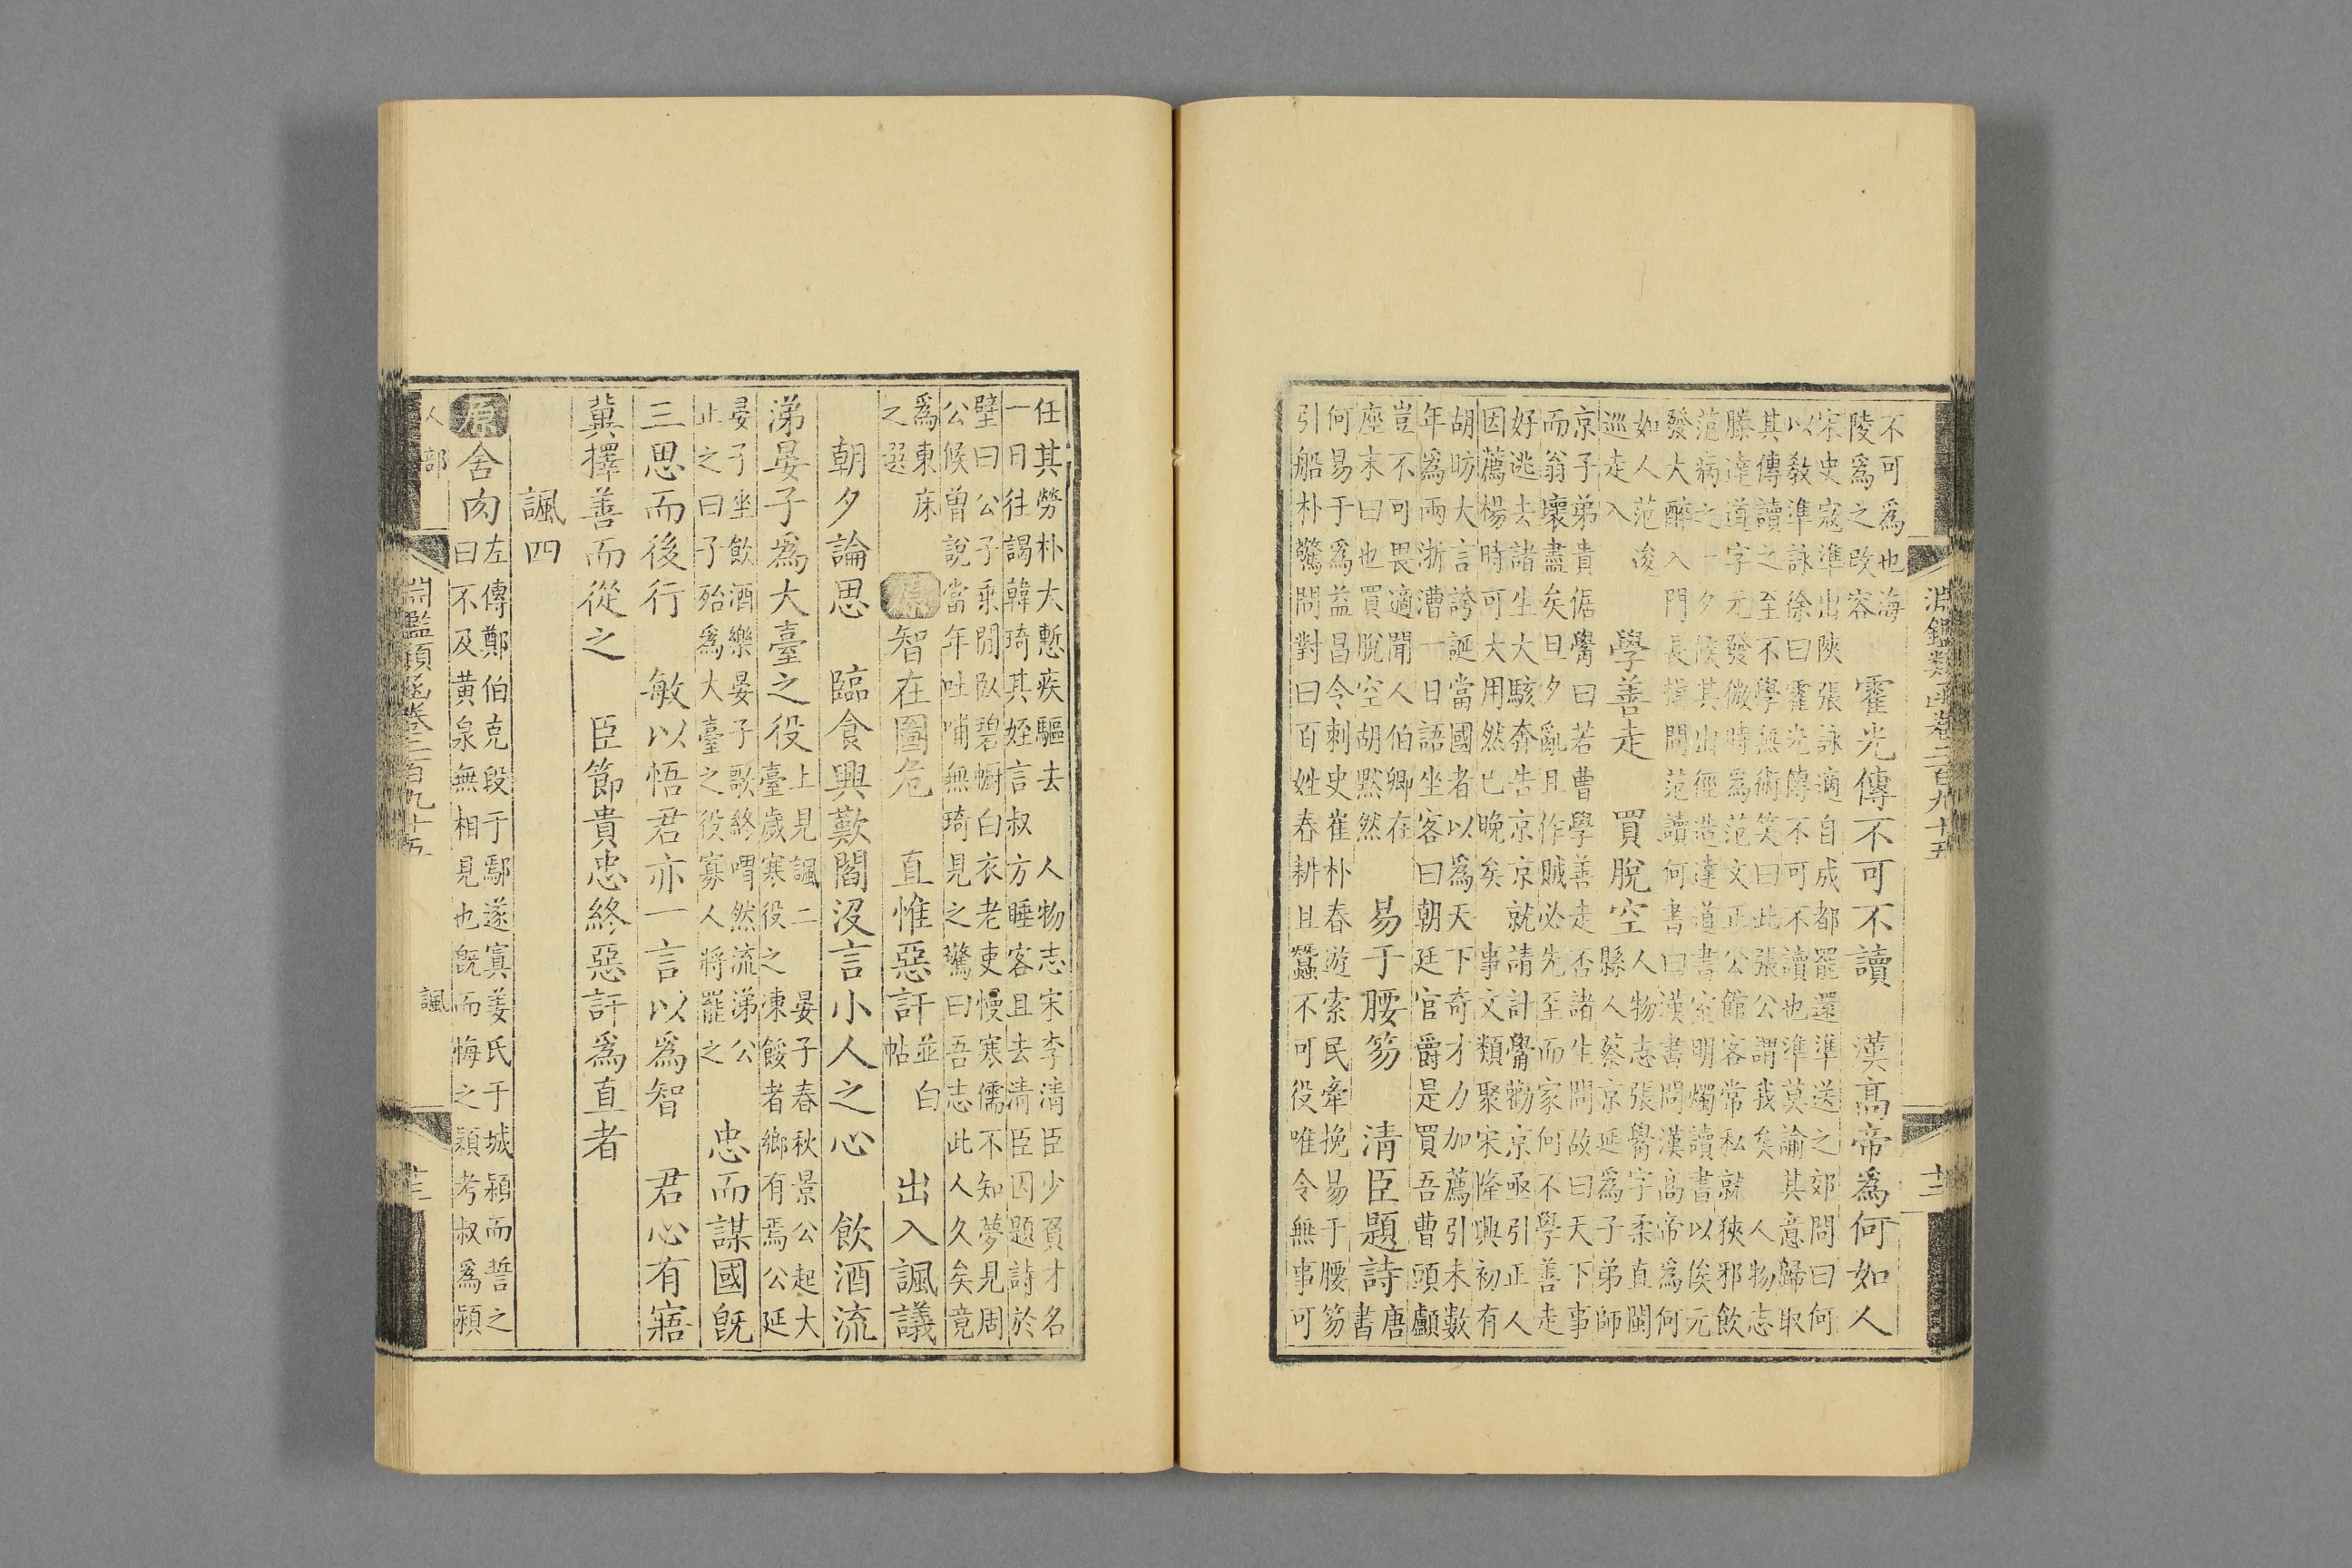 淵鑑類函卷二百九十五 十二
不可為也海
陵為之改容
霍光傳不可不讀 漢高帝為何如人
宋史寇準出陝張詠適自成都罷還準送之郊問曰何
以教準詠徐曰霍光傳不可不讀也準莫諭其意歸取
其傳讀之至不學無術笑曰此張公謂我矣 人物志
滕達道字元發微時為范文正公館客常私就狹邪飲
范病之一夕候其出徑造達道書室明燭讀書以俟元
發大醉入門長揖問范讀何書曰漢書問漢高帝為何
如人范逡
巡走入
學善走 買脫空
人物志張觷字柔直閩
縣人蔡京延為子弟師
京子弟貴倨觷曰若曹學善走否諸生問故曰天下事
而翁壞盡矣旦夕亂且作賊必先至而家何不學善走
好逃去諸生大駭奔告京京就請計觷勸京亟引正人
因薦楊時可大用然已晚矣 事文類聚宋隆興初有
胡昉大言誇誕當國者以為天下奇才力加薦引未數
年為兩浙漕一日語坐客曰朝廷官爵是買吾曹頭顱
豈不可畏適聞人伯卿在
座末曰也買脫空胡默然
易于腰笏 清臣題詩
唐
書
何易于為益昌令刺史崔朴春游索民牽挽易于腰笏
引船朴驚問對曰百姓春耕且蠶不可役唯令無事可
任其勞朴大慙疾驅去 人物志宋李清臣少負才名
一日往謁韓琦其姪言叔方睡客且去清臣因題詩於
壁曰公子乘閒臥碧㡡白衣老吏慢寒儒不知夢見周
公候曾說當年吐哺無琦見之驚曰吾志此人久矣竟
為東床
之選
原 智在圖危 直惟惡訐
並白
帖
出入諷議
朝夕論思 臨食興歎閻沒言小人之心 飲酒流
涕晏子爲大臺之役
上見諷二 晏子春秋景公起大
臺歲寒役之凍餒者鄉有焉公延
晏子坐飲酒樂晏子歌終喟然流涕公
止之曰子殆爲大臺之役寡人將罷之
忠而謀國既
三思而後行 敏以悟君亦一言以爲智 君心有寤
冀擇善而從之 臣節貴忠終惡訐爲直者
諷四
原 舍肉
左傳鄭伯克段于鄢遂寘姜氏于城潁而誓之
曰不及黃泉無相見也既而悔之潁考叔爲潁
人部 淵鑑類函卷二百九十五 諷 十三